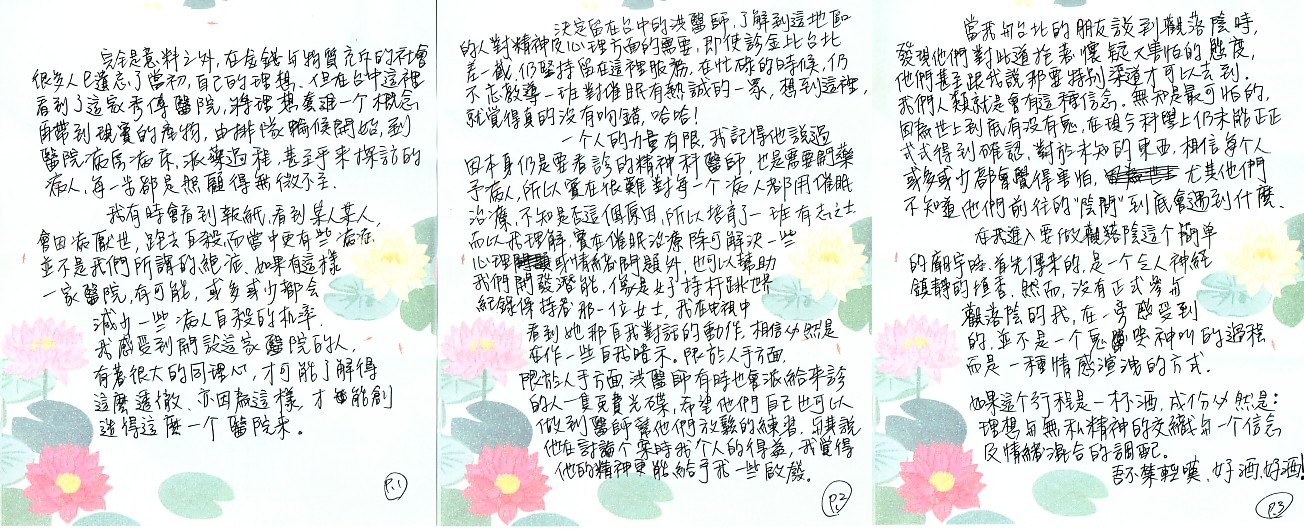 完全是意料之外,在金錢與物質充斥的社會
很多人已遺忘了當初,自己的理想.但在台中這裡
看到了這家秀傳醫院,將理想變進一個概念
再帶到現實的產物,由排隊輪侯開始,到
醫院病房病床,派藥過程,甚至乎來探訪的
病人,每一步都是照顧得無微不至.
我有時會看到報紙,看到某人某人,
會因病厭世,跑去自殺,而當中更有些病症
並不是我們所謂的絕症.如果有這樣
一家醫院,有可能,或多或少都會
減少一些病人自殺的机率.
我感受到開設這家醫院的人,
有著很大的同理心,才可能了解得
這麼透徹.亦因為這樣,才能創
造得這麼一个醫院來。
P.1
決定留在台中的洪醫師,了解到這地區
的人對精神及心理方面的需要,即使診金比台北
差一截,仍堅持留在這裡服務,在忙碌的時候,仍
不忘教導一班對催眠有熱誠的一眾,想到這裡,
就覺得真的沒有吻錯,哈哈!
一个人的力量有限,我記得他說過
因本身仍是要看診的精神科醫師,也是需要開藥
予病人,所以實在很難對每一个病人都用催眠
治療.不知是否這個原因,所以培育了一班有志之士
而以我理解,實在催眠治療除可解決一些
心理或情緒問題外,也可以幫助
我們開發潛能,像是女子持杆跳世界
紀錄保持者那一位女士,我在電視中
看到她那自我對話的動作,相信必然是
在作一些自我暗示。限於人手方面,
限於人手方面,洪醫師有時也會派給來診
的人一隻免費光碟,希望他們自己也可以
做到醫師幫他們放鬆的練習.與其說
他在討論个案時我个人的得益,我覺得
他的精神更能給予我一些啟發。
P.2
當我與台北的朋友談到觀落陰時,
發現他們對此道抱著懷疑又害怕的態度,
他們甚至跟我說那要特別渠道才可以去到.
我們人類就是會有這種信念.無知是最可怕的,
因為世上到底有沒有鬼,在現今科學上仍未能正正
式式得到確認.對於未知的東西,相信每个人
或多或少都會覺得害怕,尤其他們
不知道他們前往的"陰間"到底會遇到什麼.
在我進入要做觀落陰這个簡單
的廟宇時.首先傳來的,是一个令人神經
鎮靜的檀香.然而,沒有正式參與
觀落陰的我,在一旁感受到
的,並不是一个鬼哭神叫的過程,
而是一種情感渲洩的方式.
如果這个行程是一杯酒,成份必然是:
理想與無私精神的交織與一个信念
及情緒混合的調配。
吾不葉輕嘆,好酒,好酒!
P.3